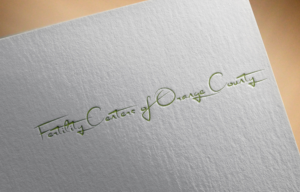 Fertility Centers of Orange County